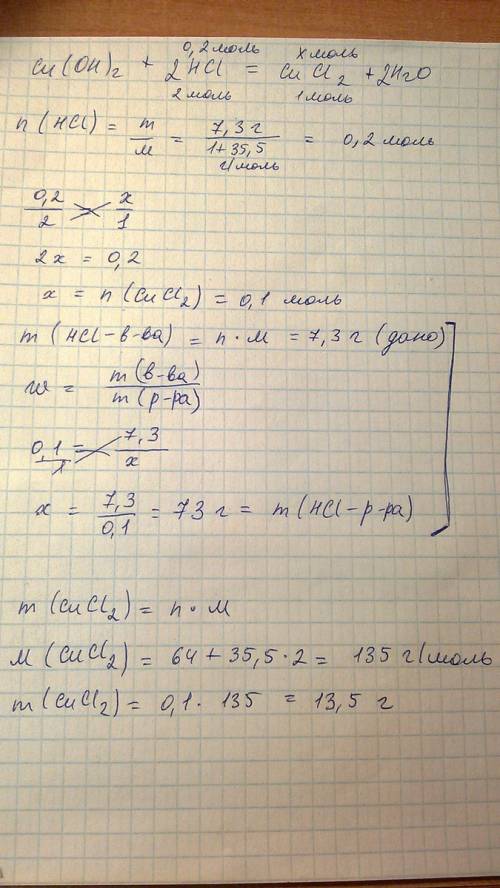 0,2 моль x моль
Cu(OH)2 + 2HCl = CuCl2 + 2H2O
2 моль 1 моль
n (HCl) = m/M = 7,3 г/1+35,5 г/моль = 0,2 моль
0,2/2 = x/1
2x = 0,2
x = n (CuCl2) = 0,1 моль
m (HCl-в-ва) = n · M = 7,3 г (дано)
w = m(в-ва)/m(р-ра)
0,1/1 = 7,3/x
x = 7,3/0,1 = 73 г = m(HCl-р-ра)
m (CuCl2) = n · M
M (CuCl2) = 64 + 35,5 · 2 = 135 г/моль
m (CuCl2) = 0,1 · 135 = 13,5 г